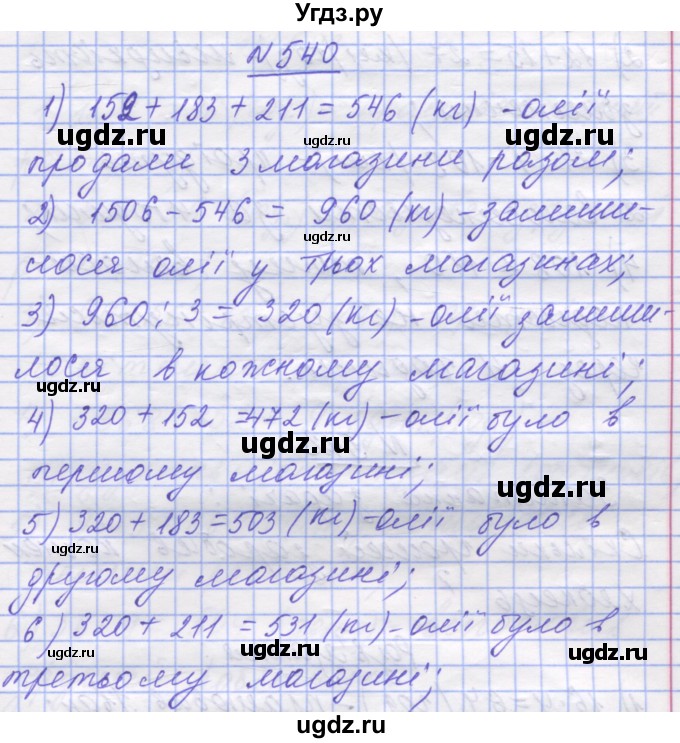 Угдз.ру
N 540
1) 152 + 183 + 211 = 546 (кг) - олії
продали 3 магазини разом;
2) 1506 - 546 = 960 (кг) - залиши-
лося олії у трьох магазинах;
3) 960 : 3 = 320 (кг) - олії залиши-
лося в кожному магазині;
4) 320 + 152 = 472 (кг) - олії було в
першому магазині;
5) 320 + 183 = 503 (кг) - олії було в
другому магазині;
6) 320 + 211 = 531 (кг) - олії було в
третьому магазині;
ugdz.ru
ugdz.ru
ugdz.ru
ugdz.ru
ugdz.ru
ugdz.ru
ugdz.ru
ugdz.ru
ugdz.ru
ugdz.ru
ugdz.ru
ugdz.ru
ugdz.ru
ugdz.ru